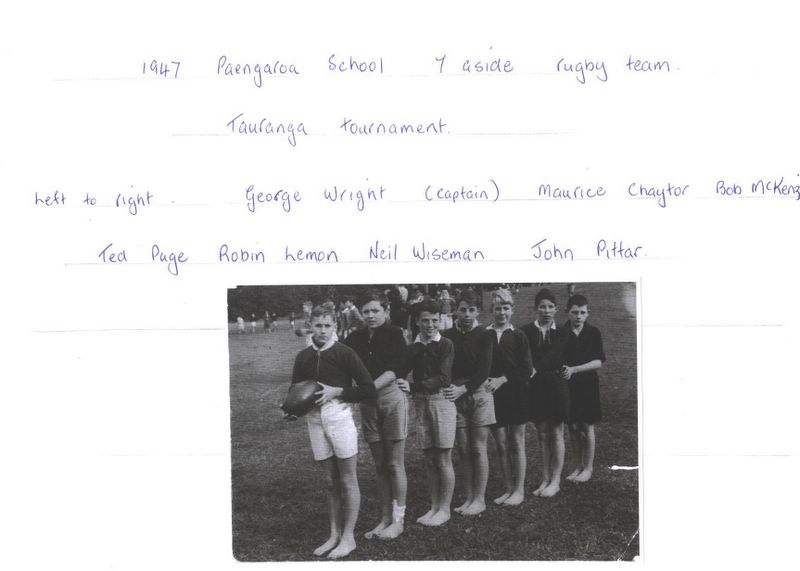 1947 Paengaroa School 7 aside rugby team.
Tauranga tournament.
Left to right. George Wright (Captain) Maurice Chaytor Bob McKenz
Ted Page Robin Lemon Neil Wiseman John Pittar.